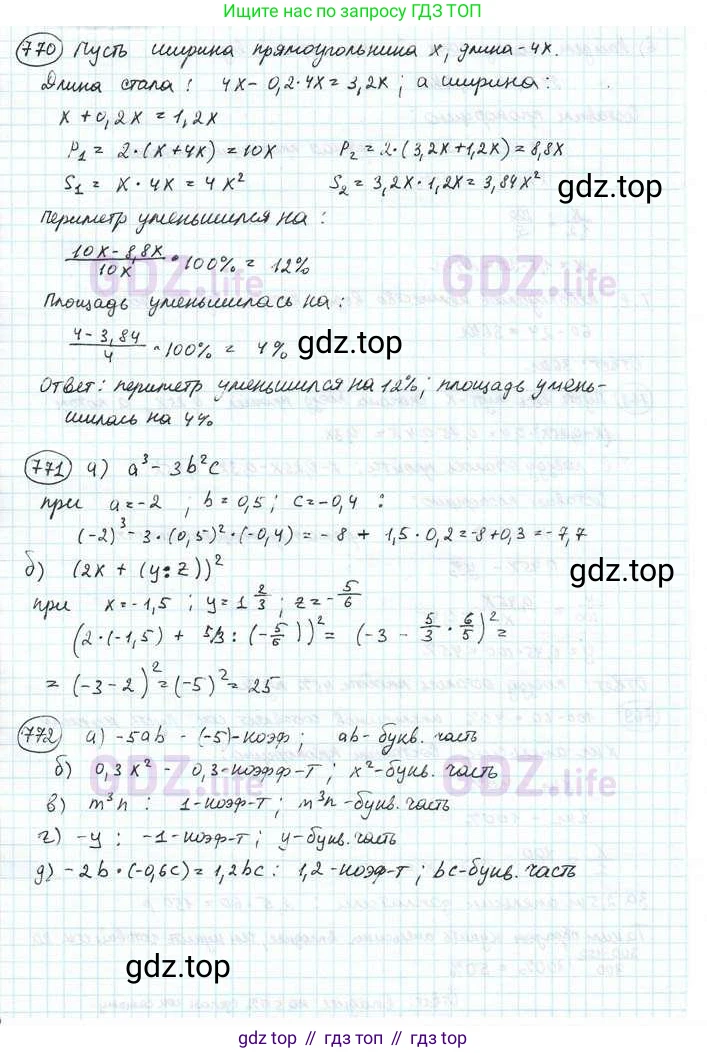 Ищите нас по запросу ГДЗ ТОП
770 Пусть ширина прямоугольника x, длина - 4x.
Длина стала: 4x - 0,2·4x = 3,2x; а ширина:
x + 0,2x = 1,2x
P₁ = 2·(x+4x) = 10x P₂ = 2·(3,2x+1,2x) = 8,8x
S₁ = x·4x = 4x² S₂ = 3,2x·1,2x = 3,84x²
gdz.top
Периметр уменьшился на:
(10x - 8,8x)/10x · 100% = 12%
GDZ.life GDZ.life
Площадь уменьшилась на:
(4 - 3,84)/4 · 100% = 4%
gdz.top
Ответ: периметр уменьшился на 12%; площадь умень-
шилась на 4%
771 а) a³ - 3b²c
при a = -2; b = 0,5; c = -0,4:
(-2)³ - 3·(0,5)²·(-0,4) = -8 + 1,5·0,2 = -8+0,3 = -7,7
б) (2x + (y:z))²
gdz.top
при x = -1,5; y = 1 2/3; z = -5/6
(2·(-1,5) + 5/3 : (-5/6))² = (-3 - 5/3 · 6/5)² =
= (-3-2)² = (-5)² = 25
772 а) -5ab - (-5)-коэф; ab - букв. часть
б) 0,3x² - 0,3-коэфф-т; x²-букв. часть
GDZ.life GDZ.life
в) m³n: 1-коэф-т; m³n-букв. часть
г) -y: -1-коэф-т; y-букв. часть
д) -2b·(-0,6c) = 1,2bc: 1,2-коэф-т; bc-букв. часть
gdz.top gdz.top
gdz.top // гдз.топ // gdz.top